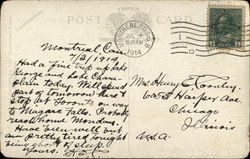 POST CARD
MONTREAL, P.Q.
1914
Montreal Can.
7/3/1914
Had a fine trip up Lake
George and Lake Cham-
plain today. Will spend
part of tomorrow here &
stop at Toronto on way
to Niagara Falls. Probably
reach home Monday.
Have been well but
am pretty tired tonight
being short of sleep
Yours,
Mrs. Henry E.
Harper Ave
Chicago
Illinois
USA